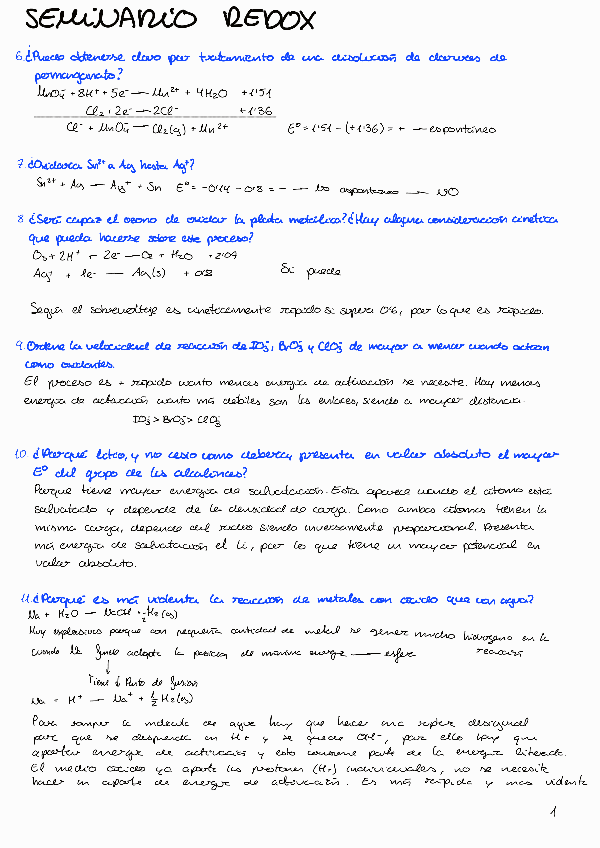 SEMINARIO REDOX
6. ¿Puede obtenerse cloro por tratamiento de una disolución de cloruros de
permanganato?
MnO4⁻ + 8H⁺ + 5e⁻ — Mn²⁺ + 4H2O +1'51
Cl2 + 2e⁻ — 2Cl⁻ +1'36
Cl⁻ + MnO4⁻ — Cl2(g) + Mn²⁺ E° = 1'51 - (+1'36) = + — espontáneo
7. ¿Oxidará Sn²⁺ a Ag hasta Ag⁺?
Sn²⁺ + Ag — Ag⁺ + Sn E° = -0'14 - 0'8 = - — no espontáneo — NO
8 ¿Será capaz el ozono de oxidar la plata metálica? ¿Hay alguna consideración cinética
que pueda hacerse sobre este proceso?
O3 + 2H⁺ + 2e⁻ — O2 + H2O +2'04
Ag⁺ + 1e⁻ — Ag(s) + 0'8 Si puede
Según el sobrevoltaje es cinéticamente rápido si supera 0'6, por lo que es rápido.
9. Ordene la velocidad de reacción de IO3⁻, BrO3⁻ y ClO3⁻ de mayor a menor cuando actúan
como oxidantes.
El proceso es + rápido cuanto menos energía de activación se necesite. Hay menos
energía de activación cuanto más débiles son los enlaces, siendo a mayor distancia.
IO3⁻ > BrO3⁻ > ClO3⁻
10 ¿Porqué litio, y no cesio como debería, presenta en valor absoluto el mayor
E° del grupo de los alcalinos?
Porque tiene mayor energía de solvatación. Esta aparece cuando el átomo está
solvatado y depende de la densidad de carga. Como ambos átomos tienen la
misma carga, depende del radio siendo inversamente proporcional. Presenta
más energía de solvatación el Li, por lo que tiene un mayor potencial en
valor absoluto.
11. ¿Porqué es más violenta la reacción de metales con ácido que con agua?
Na + H2O — NaOH + ½ H2(g)
Muy explosiva porque con pequeña cantidad de metal se genera mucho hidrógeno en la
reacción
cuando se funde adopta la posición de mínima energía — esfera
↓
Tiene ↓ Punto de fusión
Na + H⁺ — Na⁺ + ½ H2(g)
Para romper la molécula de agua hay que hacer una ruptura desigual
para que se desprenda un H+ y se quede OH⁻, para ello hay que
aportar energía de activación y esto consume parte de la energía liberada.
El medio ácido ya aporta los protones (H+) individuales, no se necesita
hacer un aporte de energía de activación. Es más rápida y más violenta
1